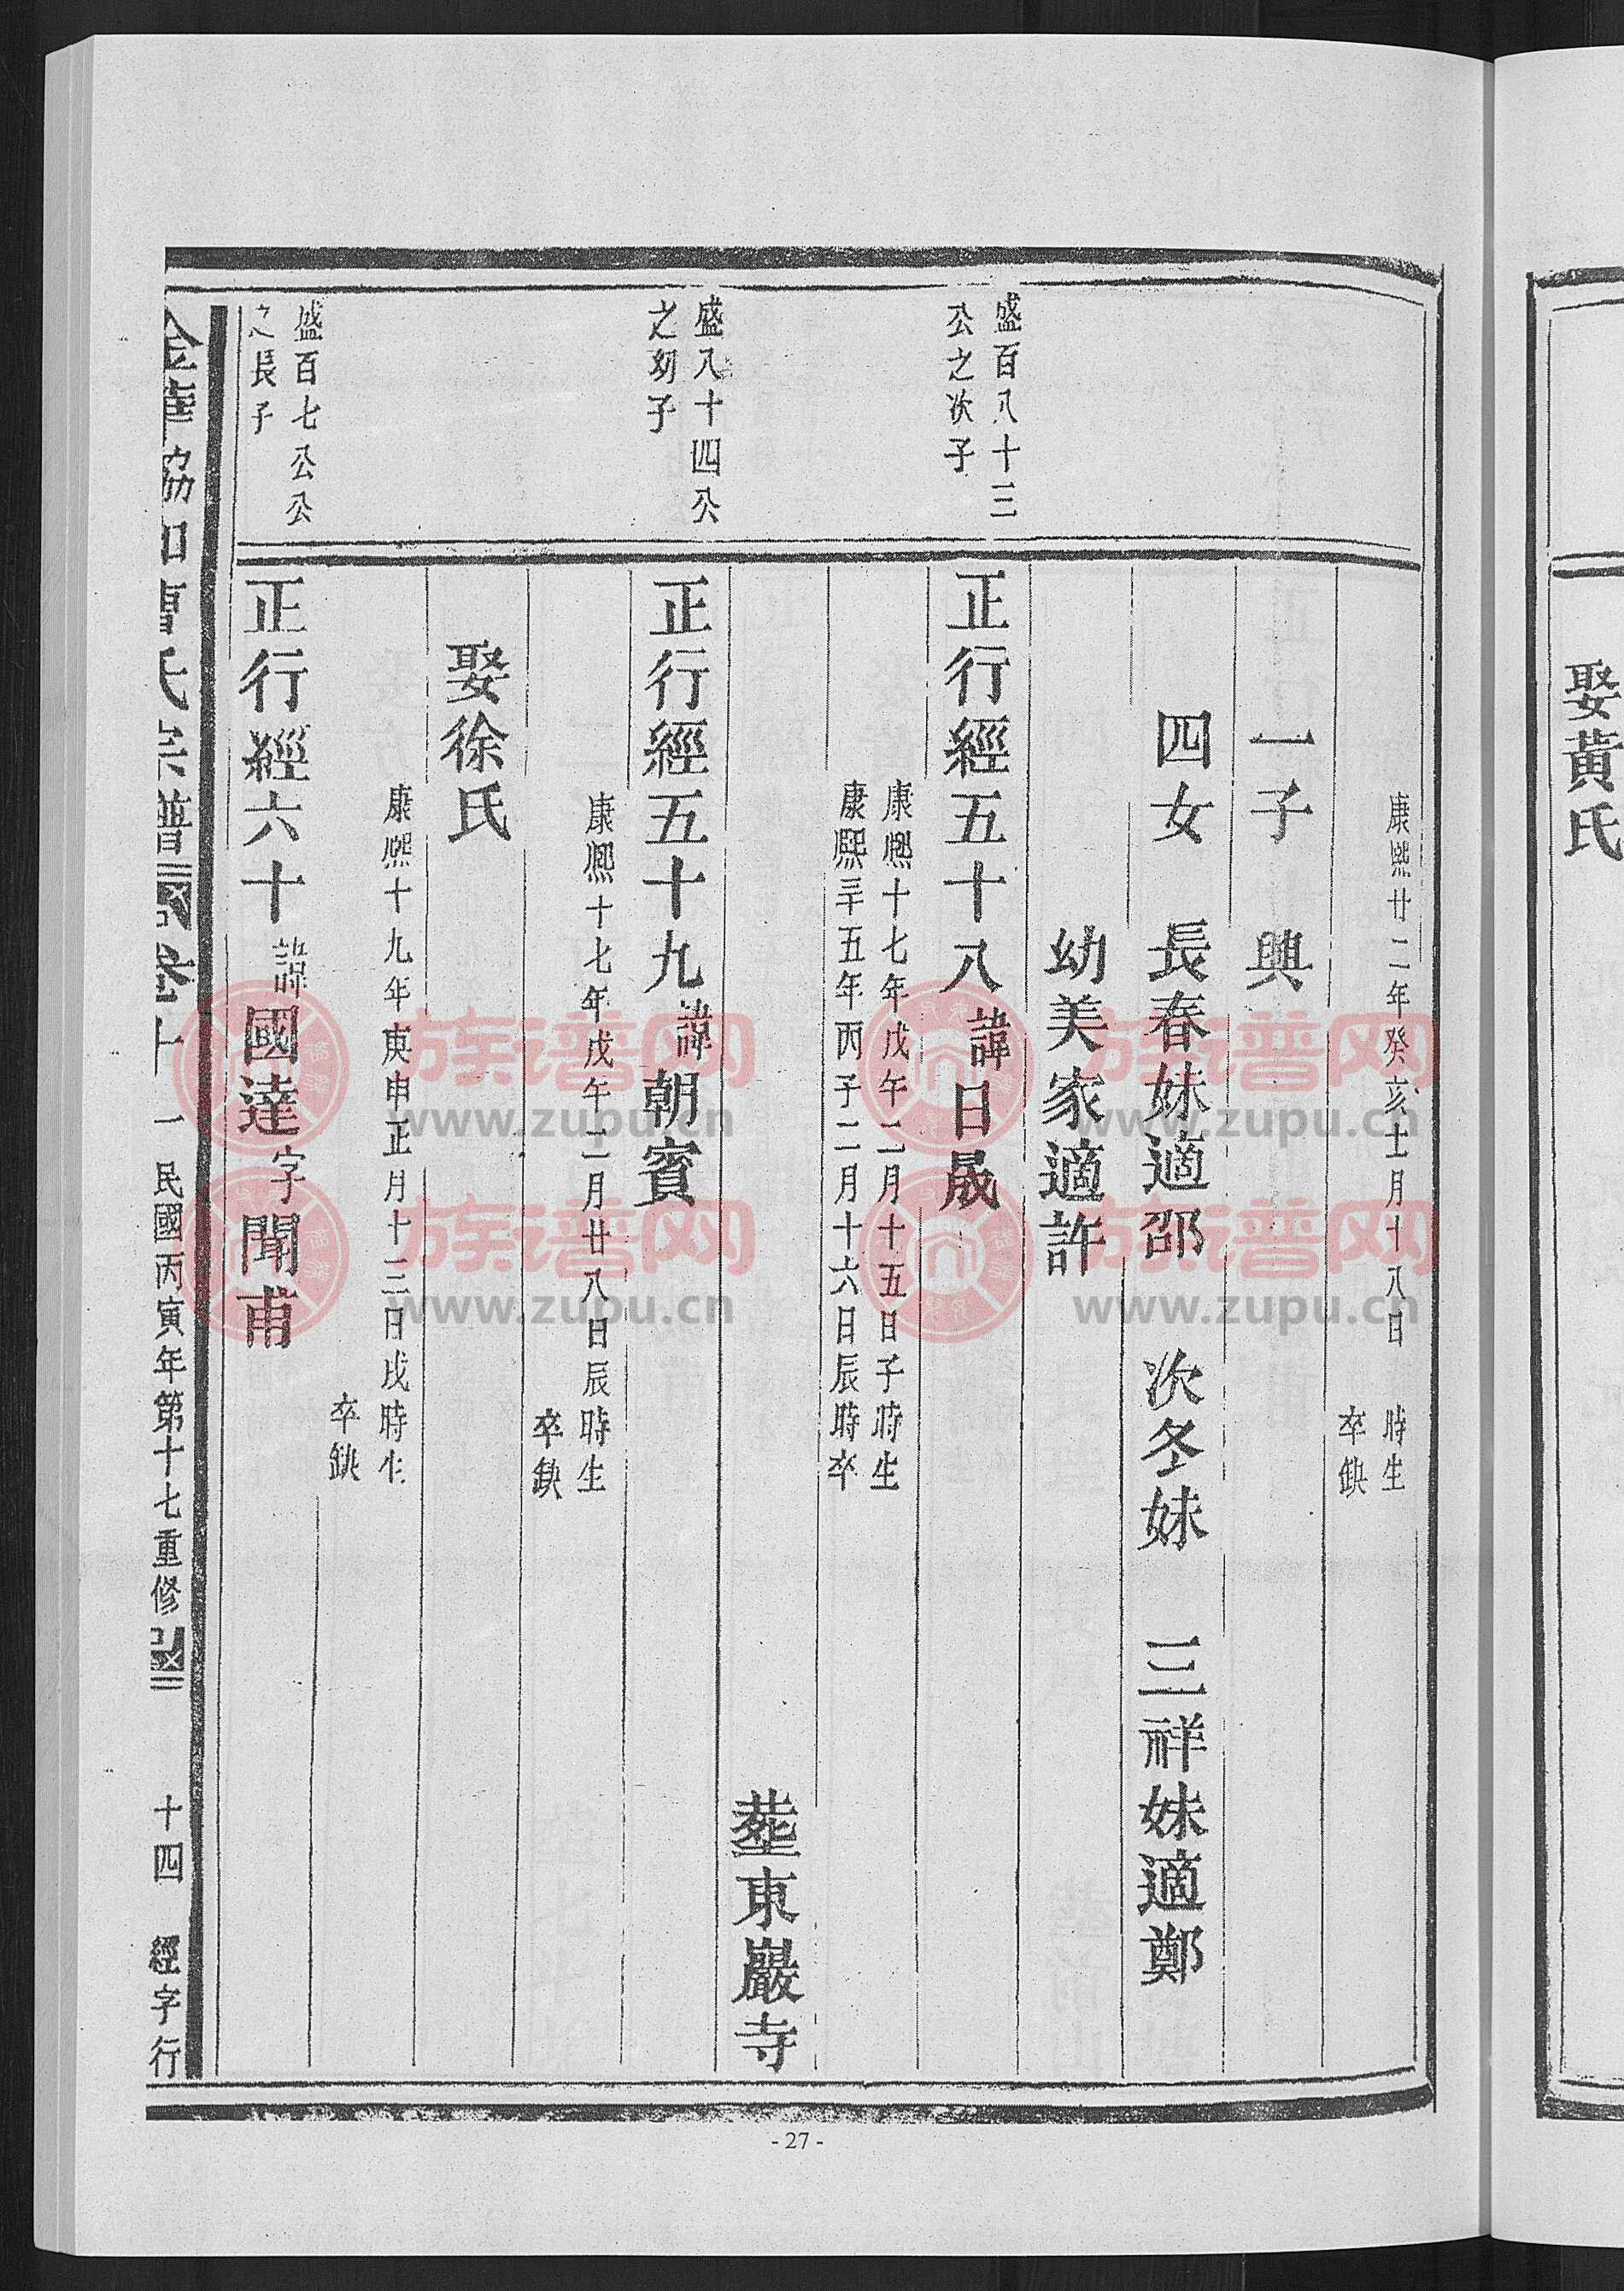 娶黃氏
康熙廿二年癸亥十一月十八日　時生
卒缺
一子　興
四女　長春妹適邵　次冬妹　三祥妹適鄭
幼美家適許
盛百八十三
公之次子
正行經五十八諱日晟
康熙十七年戊午二月十五日子時生
康熙三十五年丙子二月十六日辰時卒
塟東巖寺
盛八十四公
之幼子
正行經五十九諱朝賓
康熙十七年戊午二月廿八日辰時生
卒缺
娶徐氏
康熙十九年庚申正月十三日戌時生
卒缺
盛百七公公
之長子
正行經六十諱國達字聞甫
金華協和曹氏宗譜 卷十一 民國丙寅年第十七重修 十四 經字行
- 27 -
族谱网
www.zupu.cn
族谱网
www.zupu.cn
族谱网
www.zupu.cn
族谱网
www.zupu.cn